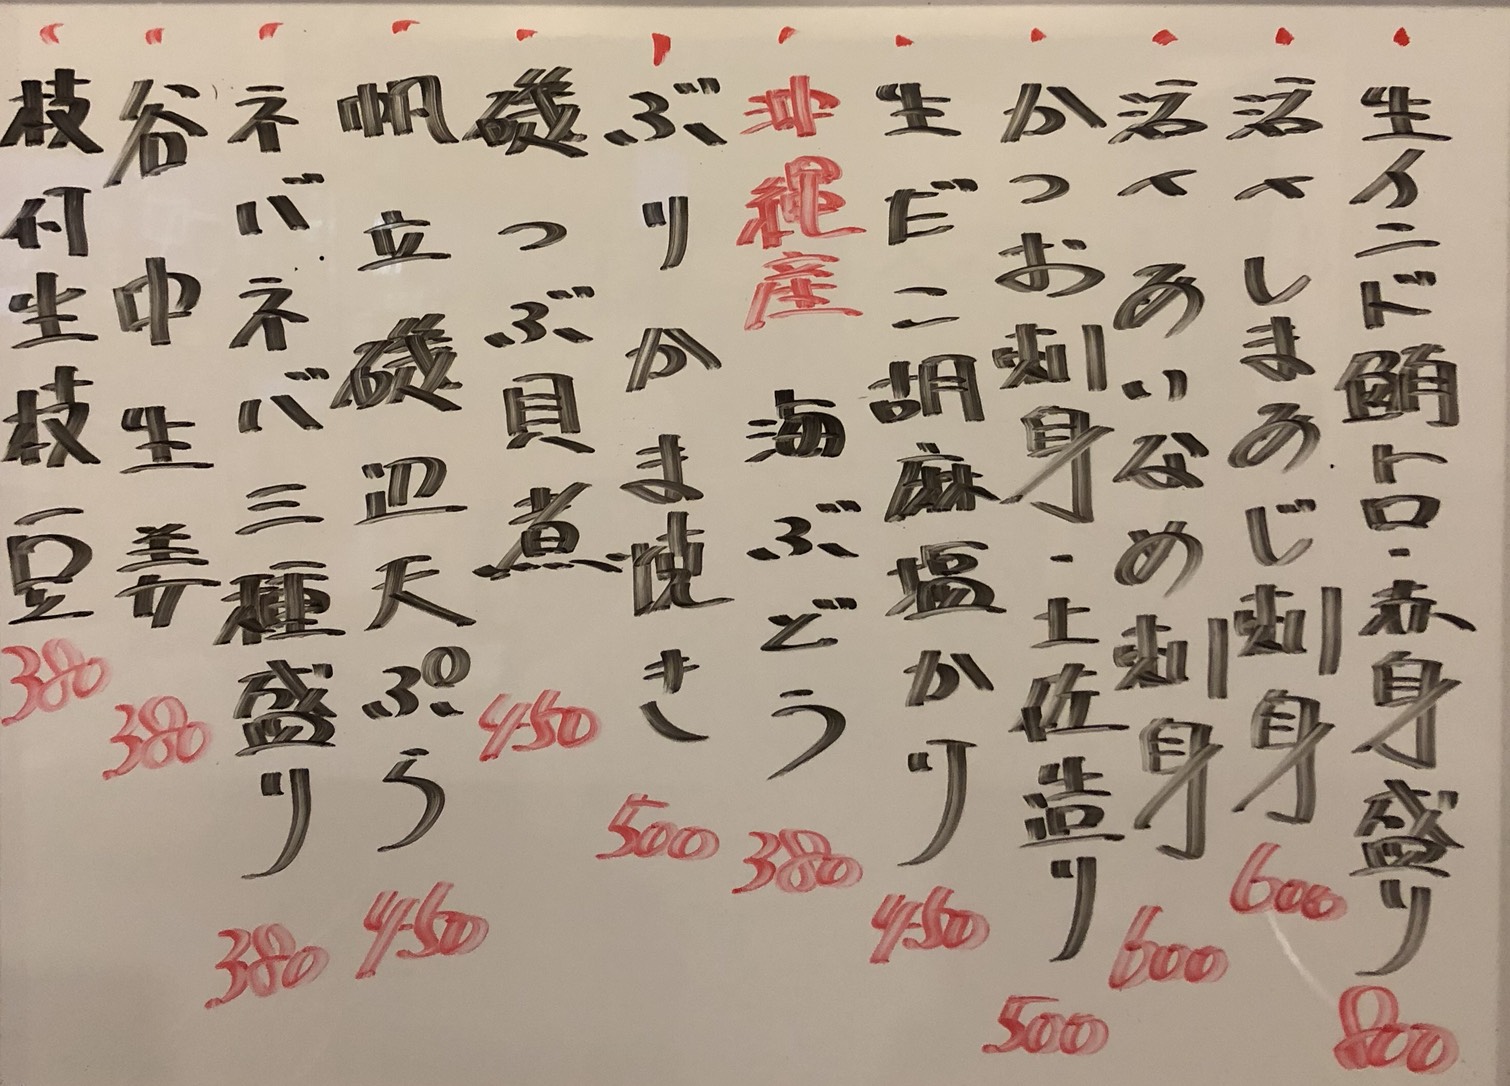 生インド鮪トロ・赤身盛り 800
活〆しまあじ刺身 600
活〆あいなめ刺身 600
かつお刺身・土佐造り 500
生だこ胡麻塩かり 450
沖縄産 海ぶどう 380
ぶりかま焼き 500
磯つぶ貝煮 450
帆立磯辺天ぷら 450
ネバネバ三種盛り 380
谷中生姜 380
枝付生枝豆 380